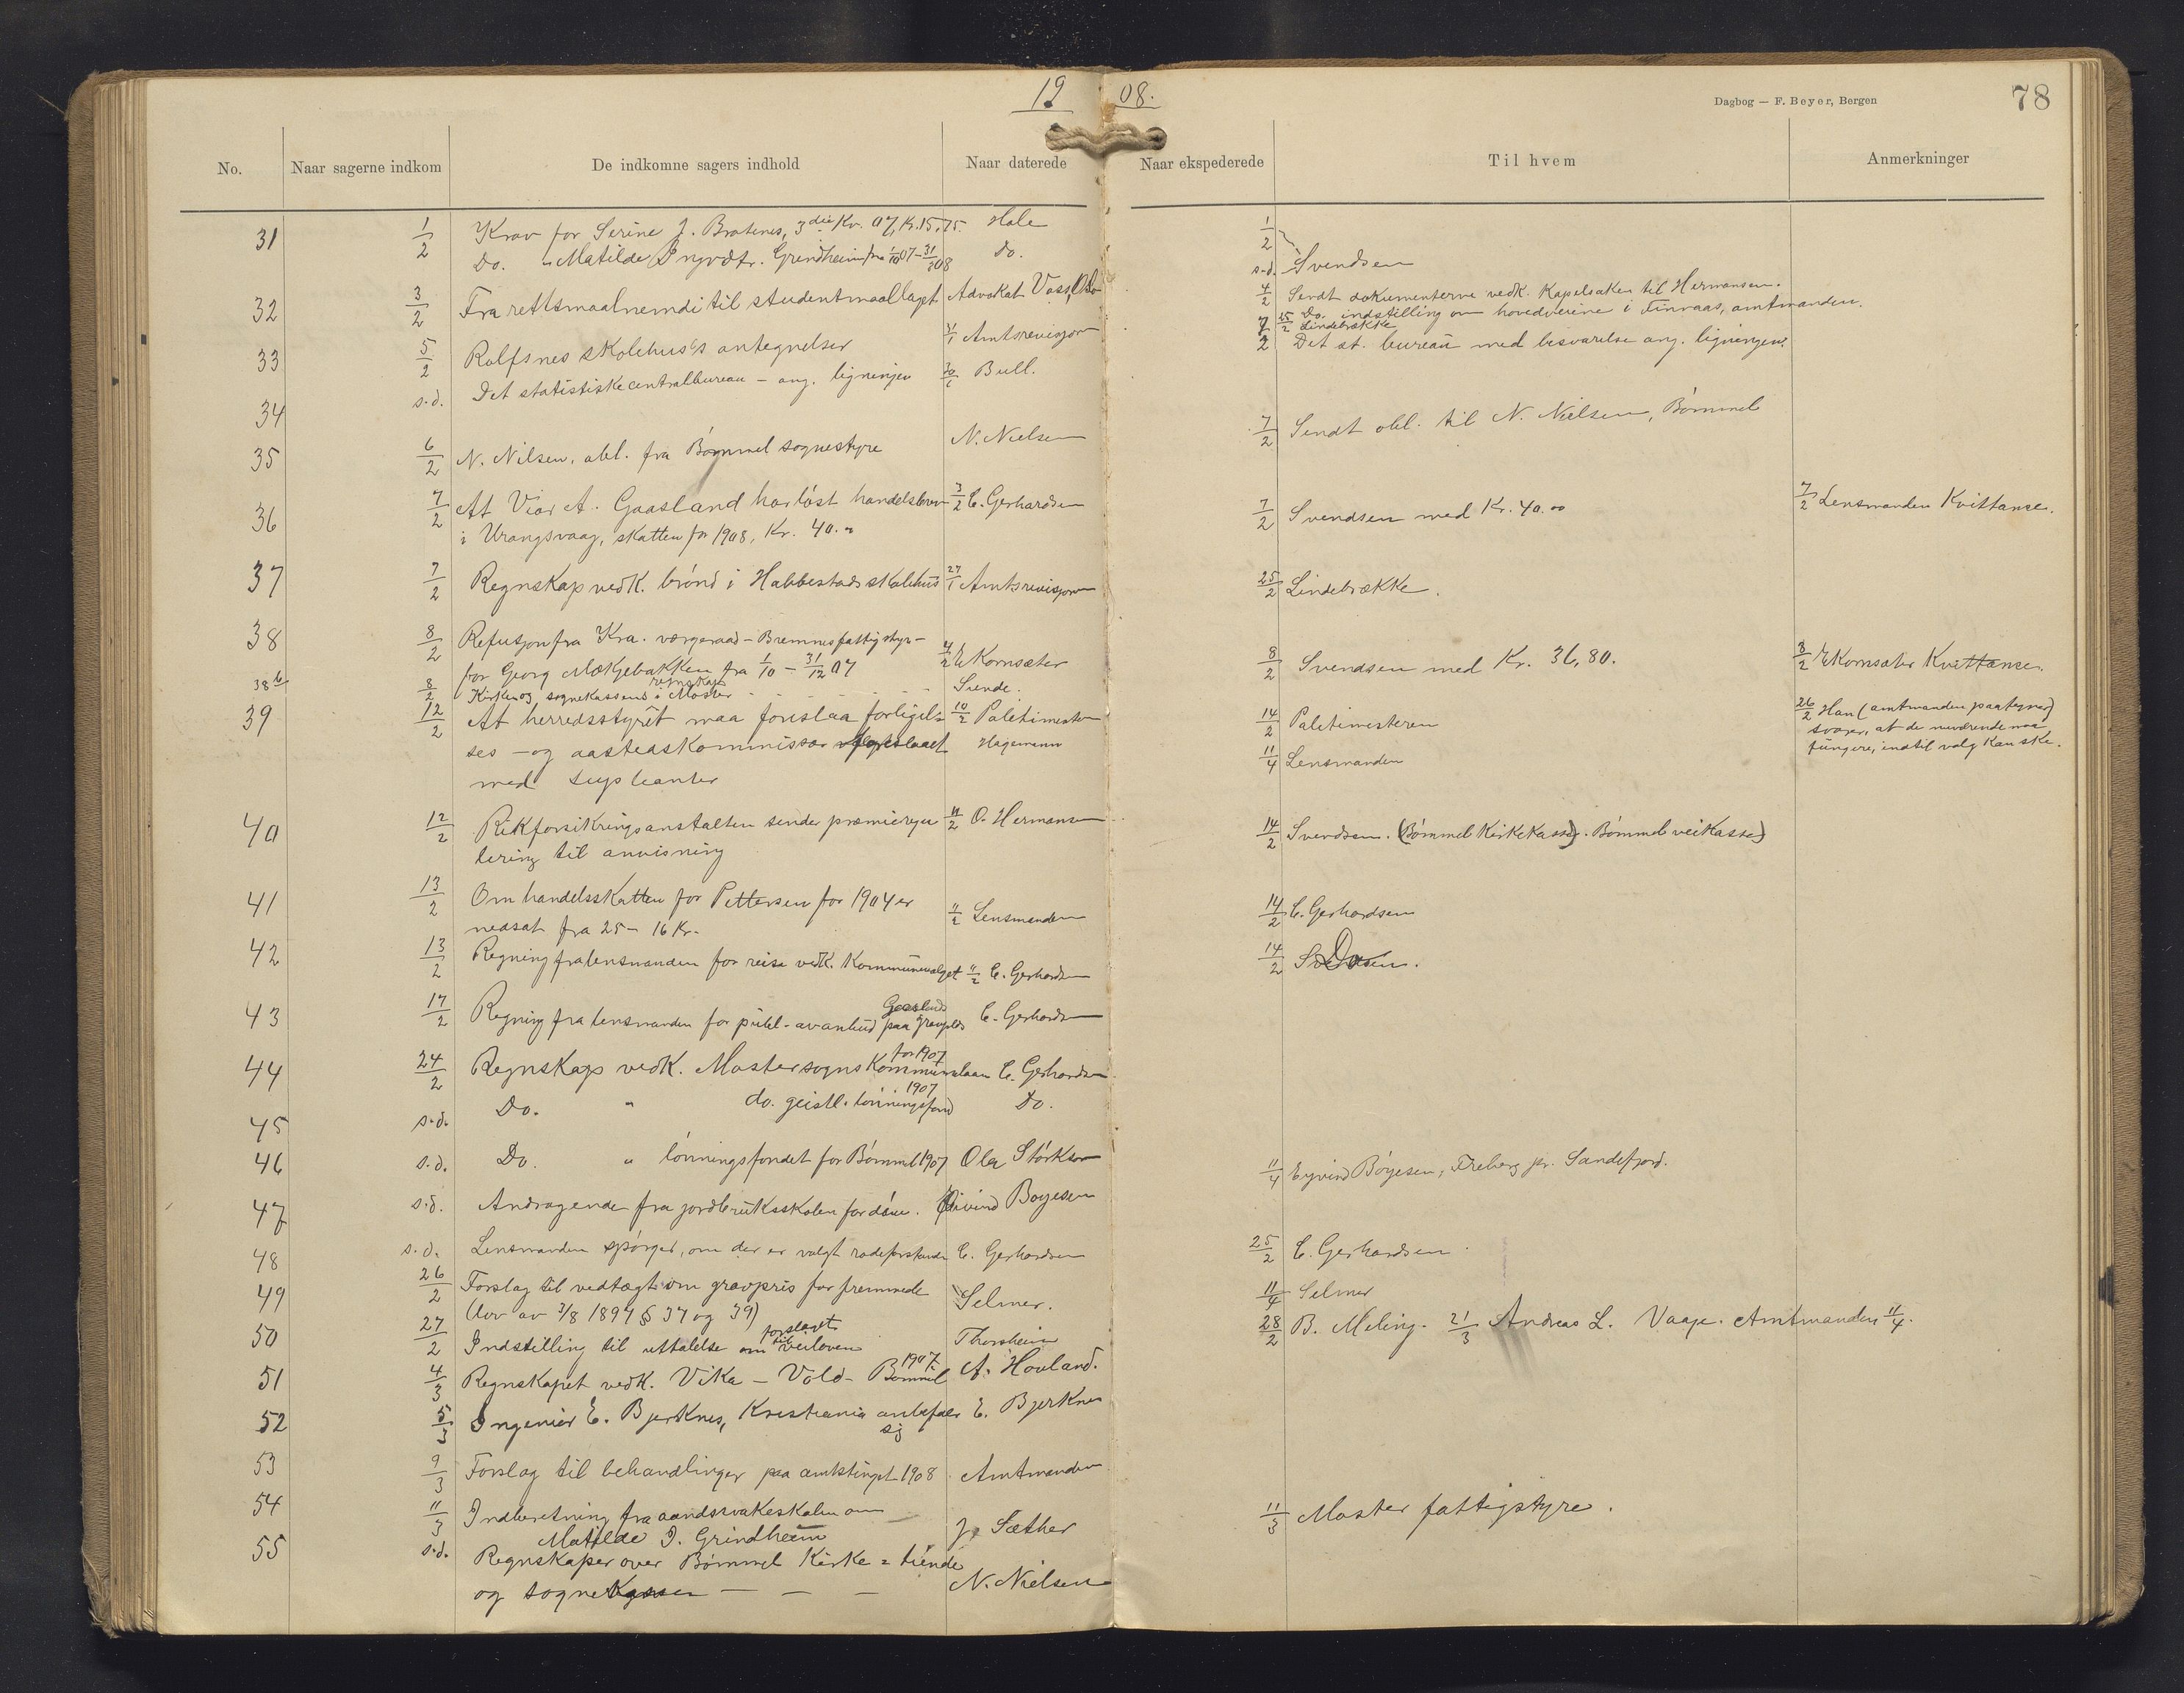 19 08.
Dagbog — F. Beyer, Bergen
78
No. Naar sagerne indkom De indkomne sagers indhold Naar daterede Naar ekspederede Til hvem Anmerkninger
31 1/2 Krav for Serine J. Bratenes, 3die Kv. 07, Kr. 15,75. Hole 1/2
Do. " Matilde Grindheim fra 1/10 07 - 31/ 08 Do. s.d. Svendsen
32 3/2 Fra rettsmaalnemndi til studentmaallaget Advokat Voss, Oslo 4/2 Sendt dokumenterne vedk. Kapelsaken til Hermansen.
25/2 Do. indstilling om hovedveiene i Finnaas, amtmanden.
Lindebrække
33 5/2 Rolfsnes skolehus's antegnelser 31/1 Amtsrevisjon 7/2 Det st. bureau med besvarelse ang. ligningen.
34 s.d. Det statistiske centralbureau - ang. ligningen Bull.
35 6/2 N. Nilsen, obl. fra Bømmel sognestyre N. Nielsen 7/2 Sendt obl. til N. Nielsen, Bømmel
36 7/2 At Vier A. Gaasland har løst handelsbrev 3/2 C. Gerhardsen 7/2 Svendsen med Kr. 40.00 7/2 Lensmanden Kvittanse.
i Urangsvaag, skatten for 1908, Kr. 40.00
37 7/2 Regnskap vedk. brønd i Habbestad skolehus 27/1 Amtsrevisjonen 25/2 Lindebrække.
38 8/2 Refusjon fra Kra. værgeraad - Bremnes fattigstyr -
for Georg Mækjebakken fra 1/10 - 31/12 07 4/2 E Kornsæter 8/2 Svendsen med Kr. 36,80. 8/2 E Kornsæter Kvittanse.
38b 8/2 Kirke og sognekassens regnskap i Moster - - - - - - Siende.
39 12/2 At herredsstyret maa foreslaa forligel- 10/2 Politimester 14/2 Politimesteren 26/2 Han (amtmanden paategner)
ses - og aasteaskommissær Hagemann svarer, at de nuværende maa
fungere, indtil valg kan ske.
med supleanter 11/4 Lensmanden
40 12/2 Rikforsikringsanstalten sender præmieregu 11/2 O. Hermansen 14/2 Svendsen. (Bømmel Kirkekasse). Bømmel veikasse)
lering til anvisning
41 13/2 Om handelsskatten for Pettersen for 1904 er 11/2 Lensmanden 14/2 C. Gerhardsen
nedsat fra 25 - 16 Kr.
42 13/2 Regning fra lensmanden for reise vedk. Kommunevalget 11/2 C. Gerhardsen 14/2 Do.
43 17/2 Regning fra lensmanden for publ. av anbud paa Gaasland C. Gerhardsen
44 24/2 Regnskap vedk. Moster sogns Kommunelaan for 1907 C. Gerhardsen
45 s.d. Do. " do. geistl. lønningsfond 1907 Do.
46 s.d. Do. " lønningsfondet for Bømmel 1907 Ola Størksen
47 s.d. Andragende fra jordbruksskolen for døve. Eivind Boyesen 11/4 Eyvind Böyesen, Freberg pr. Sandefjord.
48 s.d. Lensmanden spörger, om der er valgt rodeforstander C. Gerhardsen 25/2 C. Gerhardsen
49 26/2 Forslag til vedtægt om gravpris for fremmede Selmer. 11/4 Selmer
(lov av 3/8 1897 § 37 og 39)
50 27/2 Indstilling til uttalelse om forslaget til veiloven Thorsheim 28/2 B. Meling. 21/3 Andreas L. Vaage. Amtmanden 11/4.
51 4/3 Regnskapet vedk. Vika - Vold - Bømmel 1907. A. Hovland.
52 5/3 Ingeniør E. Bjerknes, Kristiania anbefaler E. Bjerknes
sig
53 9/3 Forslag til behandlinger paa amtstinget 1908 Amtmanden
54 11/3 Indberetning fra aandssvakeskolen om J. Sæther 11/3 Moster fattigstyre.
Matilde I. Grindheim
55 s.d. Regnskaper over Bømmel Kirke = tiende
og sognekassen — — — N. Nielsen